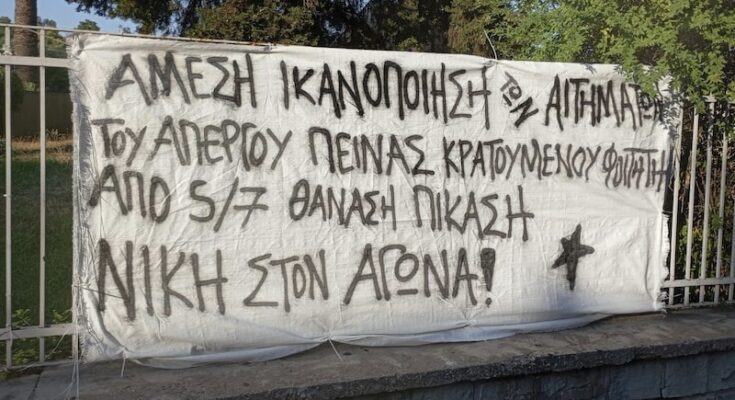 ΑΜΕΣΗ ΙΚΑΝΟΠΟΙΗΣΗ ΤΩΝ ΑΙΤΗΜΑΤΩΝ
ΤΟΥ ΑΠΕΡΓΟΥ ΠΕΙΝΑΣ ΚΡΑΤΟΥΜΕΝΟΥ ΦΟΙΤΗΤΗ
ΑΠΟ 5/7 ΘΑΝΑΣΗ ΠΙΚΑΣΗ
ΝΙΚΗ ΣΤΟΝ ΑΓΩΝΑ!